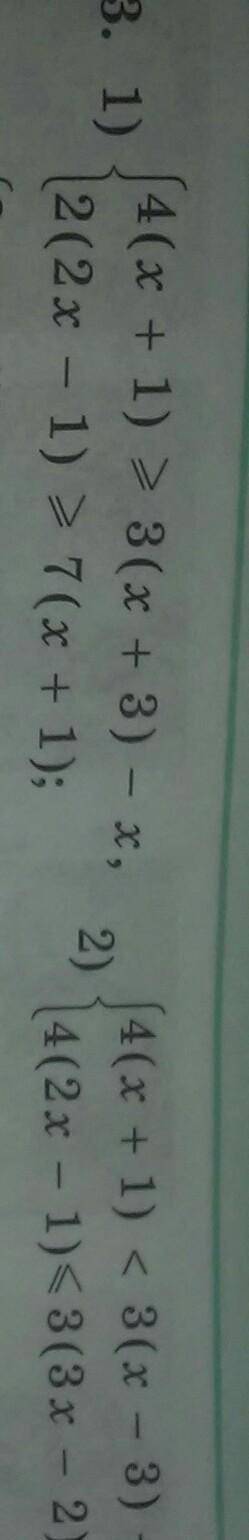 3. 1) { 4(x + 1) ⩾ 3(x + 3) − x,
2(2x − 1) ⩾ 7(x + 1);
2) { 4(x + 1) < 3(x − 3)
4(2x − 1) ⩽ 3(3x − 2)